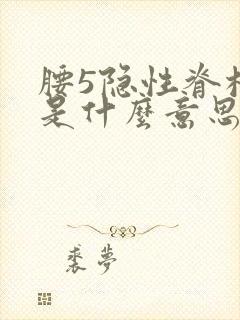 腰5隐性脊柱
是什麼意思
裘夢